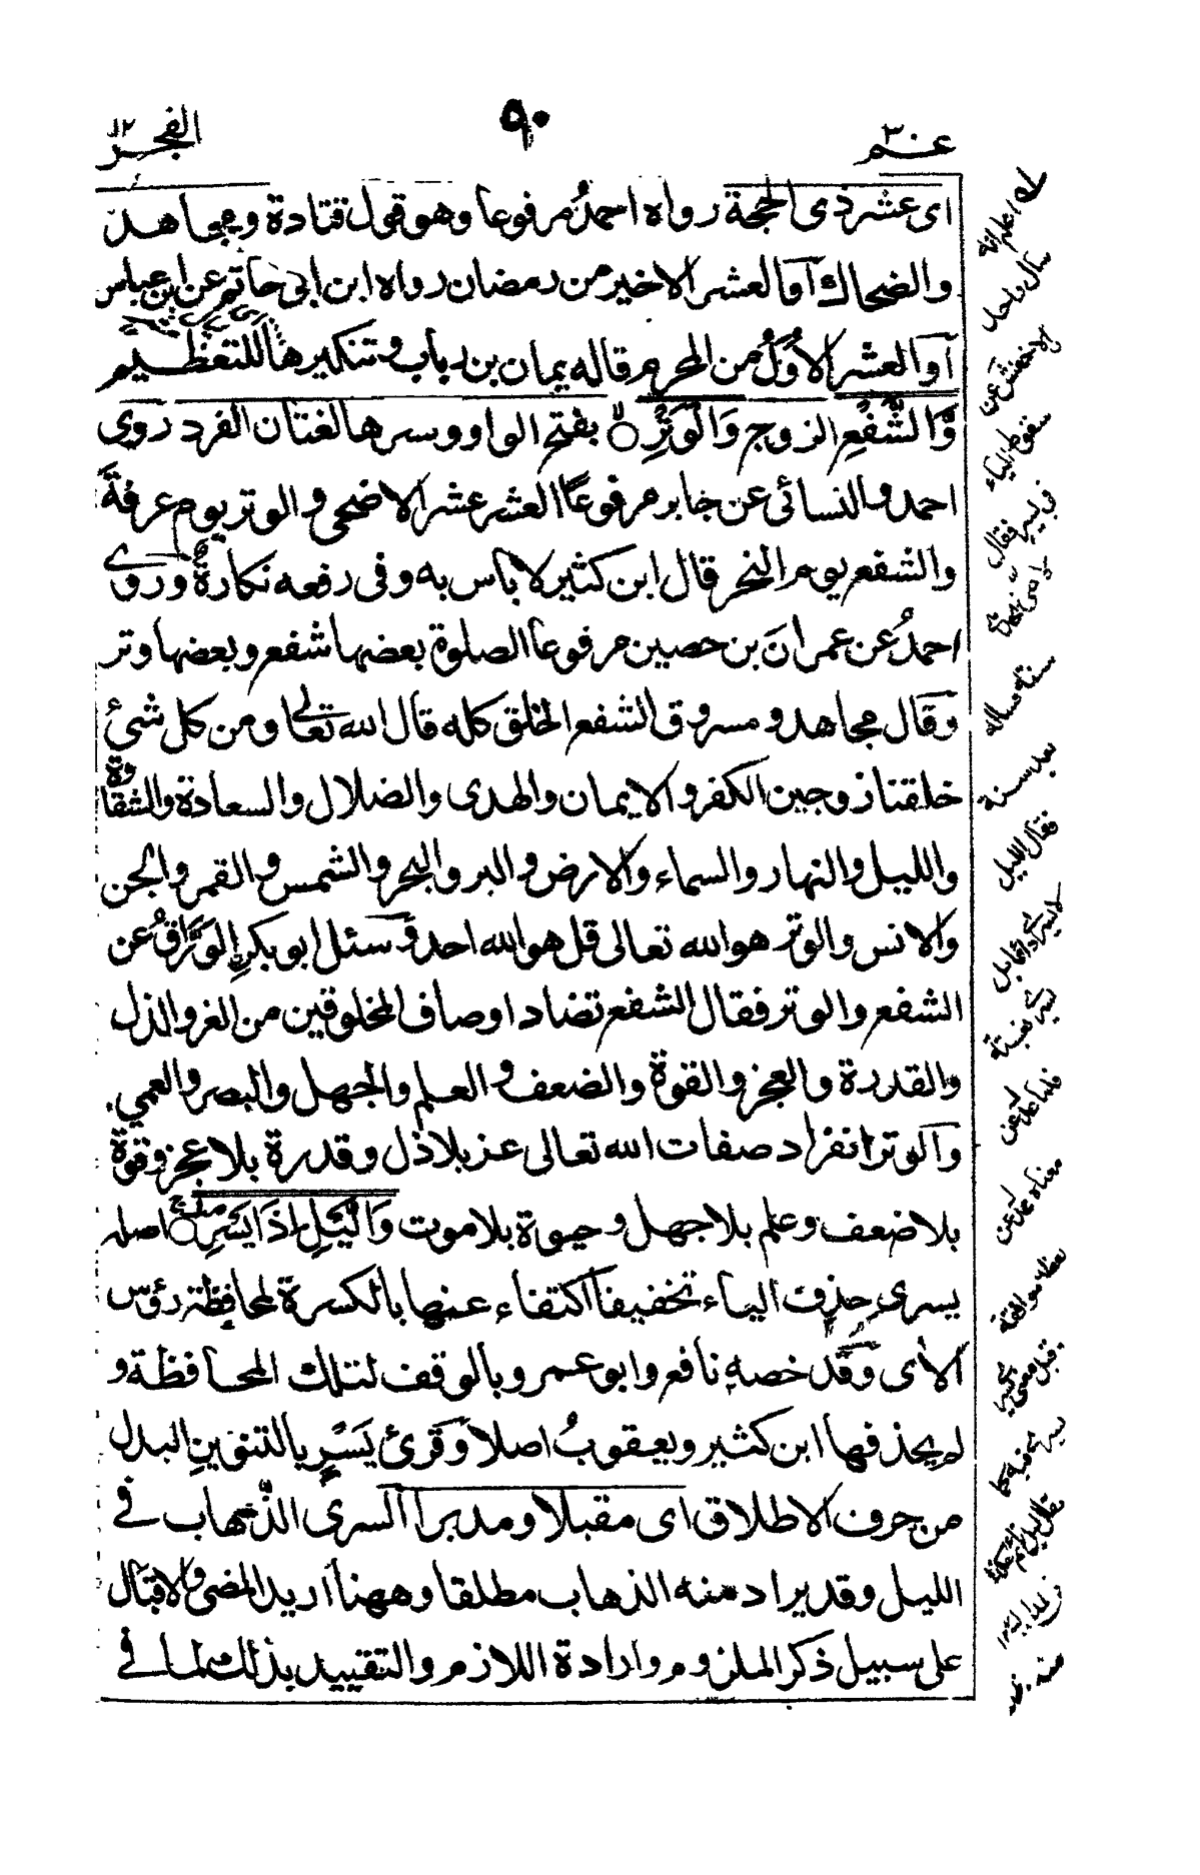 عم ٣٠
٩٠
الفجر
اى عشر ذى الحجة رواه احمدُ مرفوعا وهو قول قتادة ومجاهد
والضحاك آو العشر الاخير من رمضان رواه ابن ابى حاتم عن ابن عباس
آو العشر الاَوّلُ من المحرم قاله يمان بن رباب وتنكيرها للتعظيم
وَّالشَّفْعِ الزوج وَالْوَتْرِ بفتح الواو وكسرها لغتان الفرد روى
احمد والنسائى عن جابر مرفوعًا العشر عشر الاضحى والوتر يوم عرفةَ
والشفع يوم النحر قال ابن كثير لا باس به وفى رفعه نكارة ورَوٰى
احمدُ عن عمرانَ بن حصين مرفوعا الصلوة بعضها شفع وبعضها وتر
وقال مجاهد ومسروق الشفع الخلق كله قال الله تعالى ومن كل شئ
خلقنا زوجين الكفر والايمان والهدى والضلال والسعادة والشقاوة
والليل والنهار والسماء والارض والبر والبحر والشمس والقمر والجن
والانس والوتر هو الله تعالى قل هو الله احد وسئل ابو بكرِ الوَرَّاقُ عن
الشفع والوتر فقال الشفع تضاد اوصاف المخلوقين من العز والذل
والقدرة والعجز والقوة والضعف والعلم والجهل والبصر والعمى
والوتر انفراد صفات الله تعالى عز بلا ذل وقدرة بلا عجز وقوة
بلا ضعف وعلم بلا جهل وحيوة بلا موت وَالَّيْلِ اِذَا يَسْرِ اصله
يسرى حذف الياء تخفيفا اكتفاء عنها بالكسرة لمحافظة رؤس
الآى وقد خصه نافع وابو عمرو بالوقف لتلك المحافظة و
لم يحذفها ابن كثير ويعقوبُ اصلا وقرئ يَسْرٍ بالتنوينِ البدل
من حرف الاطلاق اى مقبلا ومدبرا السرى الذهاب فى
الليل وقد يراد منه الذهاب مطلقا وههنا اريد المضى والاقبال
على سبيل ذكر الملزوم وارادة اللازم والتقييد بذلك لما فى